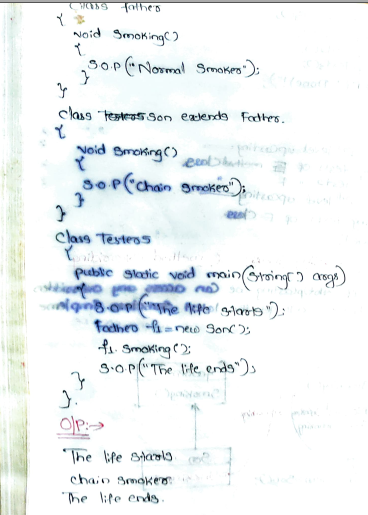 class father
{
void smoking()
{
S.O.P("Normal Smoker");
}
}
class Son extends Father.
{
void smoking()
{
S.O.P("Chain Smoker");
}
}
class Tester5
{
public static void main(String[] args)
{
S.O.P("The life starts");
Father f1 = new Son();
f1.smoking();
S.O.P("The life ends");
}
}.
O/P:→
The life starts
chain smoker
The life ends.